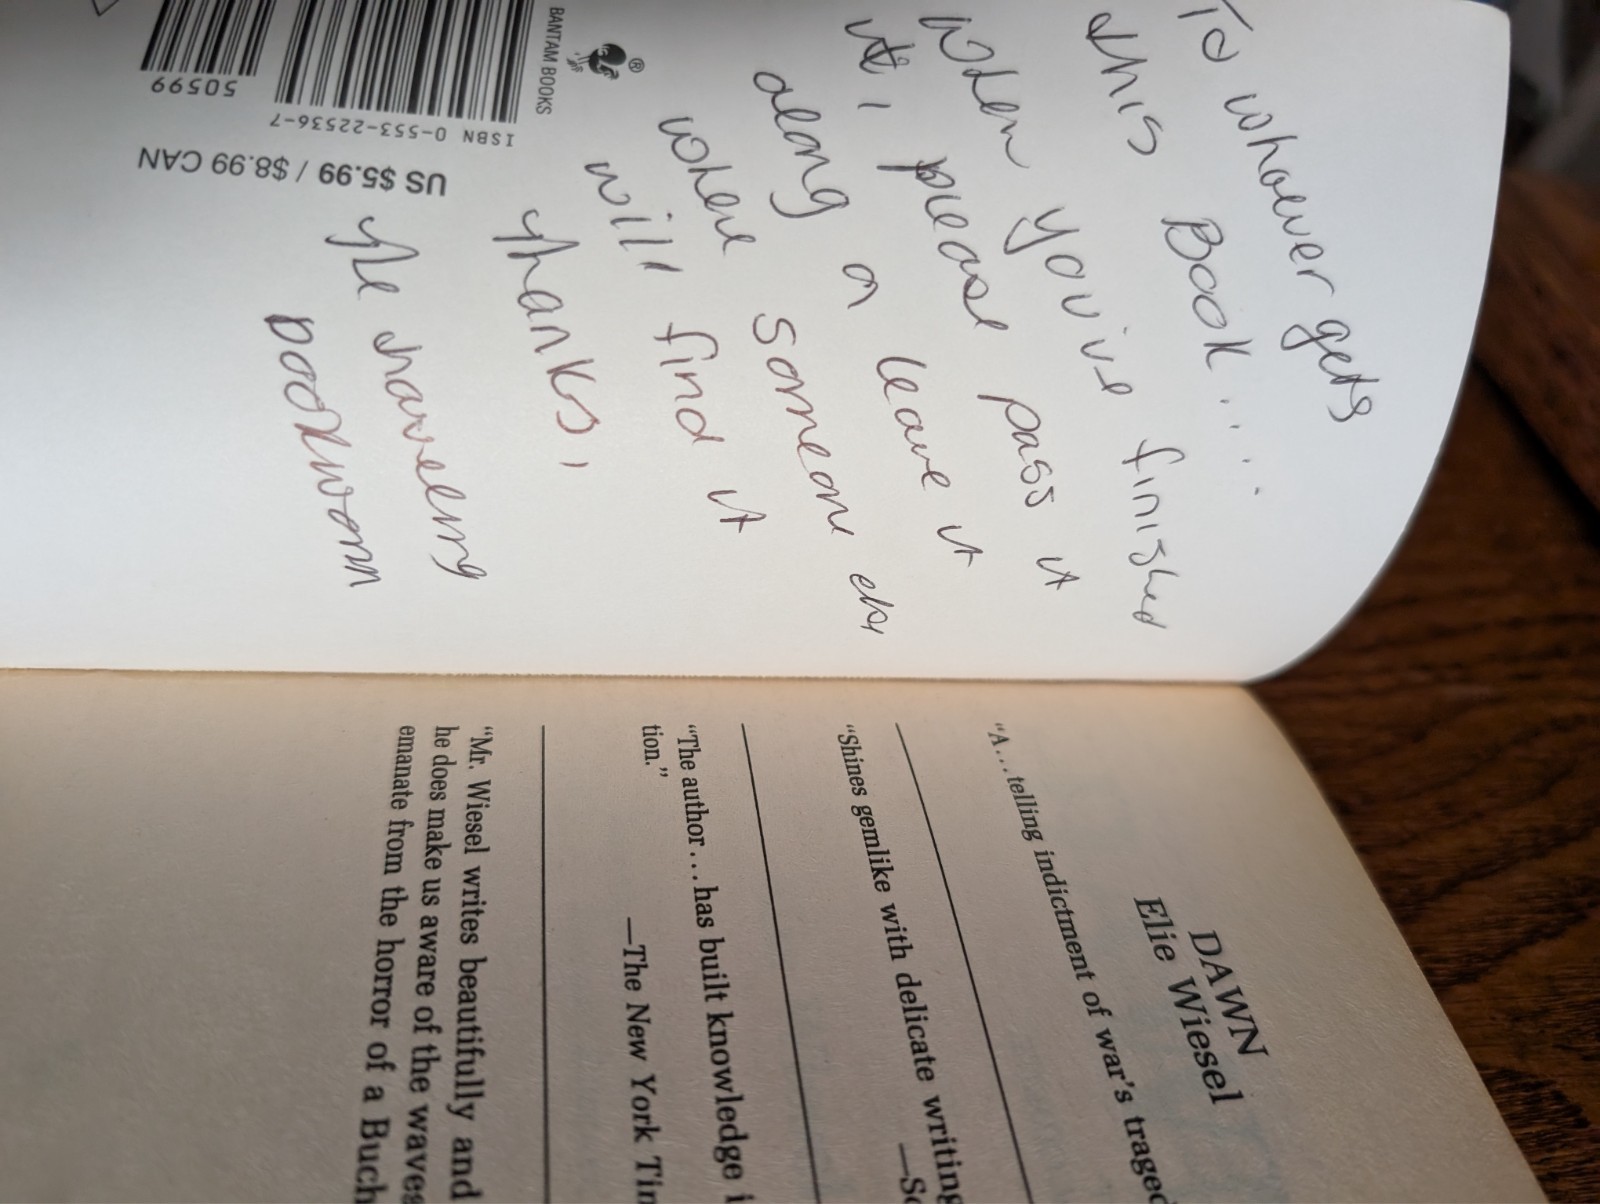 To whoever gets
this Book....
When you've finished
it, please pass it
along or leave it
where someone else
will find it
Thanks,
The traveling
bookworm
BANTAM BOOKS
®
50599
ISBN 0-553-22536-7
US $5.99 / $8.99 CAN
DAWN
Elie Wiesel
"A...telling indictment of war's traged
"Shines gemlike with delicate writing
—Sc
"The author...has built knowledge i
tion."
—The New York Tim
"Mr. Wiesel writes beautifully and
he does make us aware of the waves
emanate from the horror of a Buch